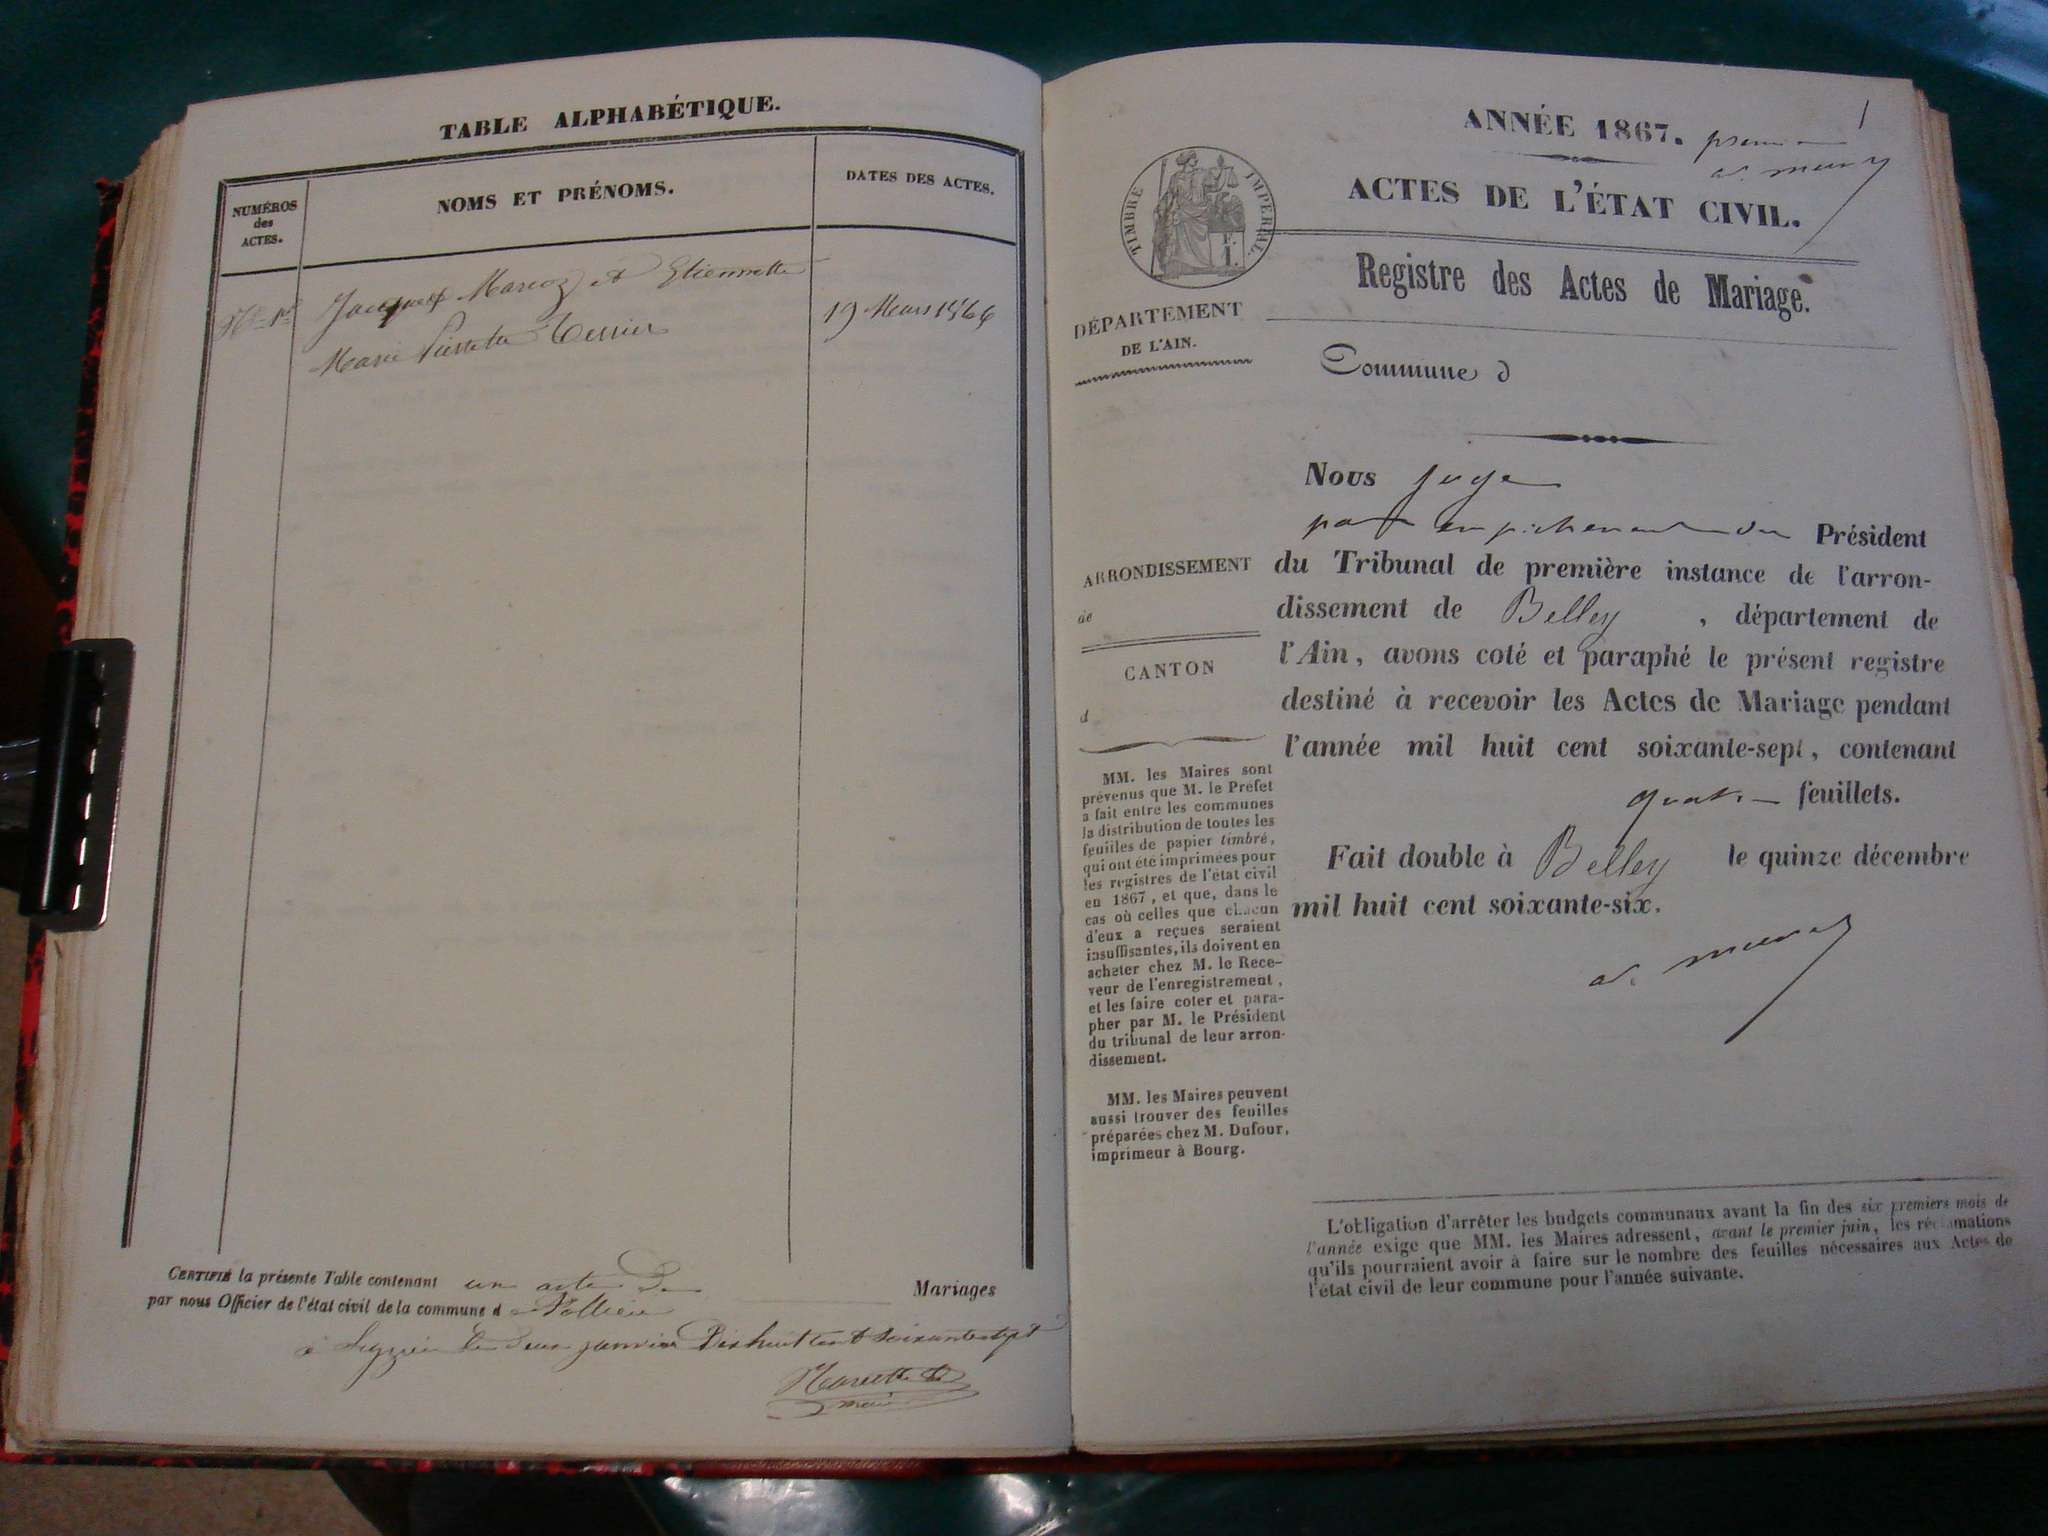 TABLE ALPHABÉTIQUE.
NUMÉROS
des
ACTES.
NOMS ET PRÉNOMS.
DATES DES ACTES.
N° 1er
Jacques Marcoz et Etiennette
Marie Pierrette Terrier
19 Mars 1866
CERTIFIÉ la présente Table contenant un acte de Mariages
par nous Officier de l'état civil de la commune d
à le deux janvier Dix huit cent soixante sept
maire
1
ANNÉE 1867.
ACTES DE L'ÉTAT CIVIL.
TIMBRE IMPÉRIAL
Registre des Actes de Mariage.
DÉPARTEMENT
DE L'AIN.
Commune d
Nous juge
par empêchement du Président
du Tribunal de première instance de l'arron-
dissement de Belley , département de
l'Ain, avons coté et paraphé le présent registre
destiné à recevoir les Actes de Mariage pendant
l'année mil huit cent soixante-sept, contenant
quatre feuillets.
Fait double à Belley le quinze décembre
mil huit cent soixante-six.
ARRONDISSEMENT
de
CANTON
d
MM. les Maires sont
prévenus que M. le Préfet
a fait entre les communes
la distribution de toutes les
feuilles de papier timbré,
qui ont été imprimées pour
les registres de l'état civil
en 1867, et que, dans le
cas où celles que chacun
d'eux a reçues seraient
insuffisantes, ils doivent en
acheter chez M. le Rece-
veur de l'enregistrement,
et les faire coter et para-
pher par M. le Président
du tribunal de leur arron-
dissement.
MM. les Maires peuvent
aussi trouver des feuilles
préparées chez M. Dufour,
imprimeur à Bourg.
L'obligation d'arrêter les budgets communaux avant la fin des six premiers mois de
l'année exige que MM. les Maires adressent, avant le premier juin, les réclamations
qu'ils pourraient avoir à faire sur le nombre des feuilles nécessaires aux Actes de
l'état civil de leur commune pour l'année suivante.